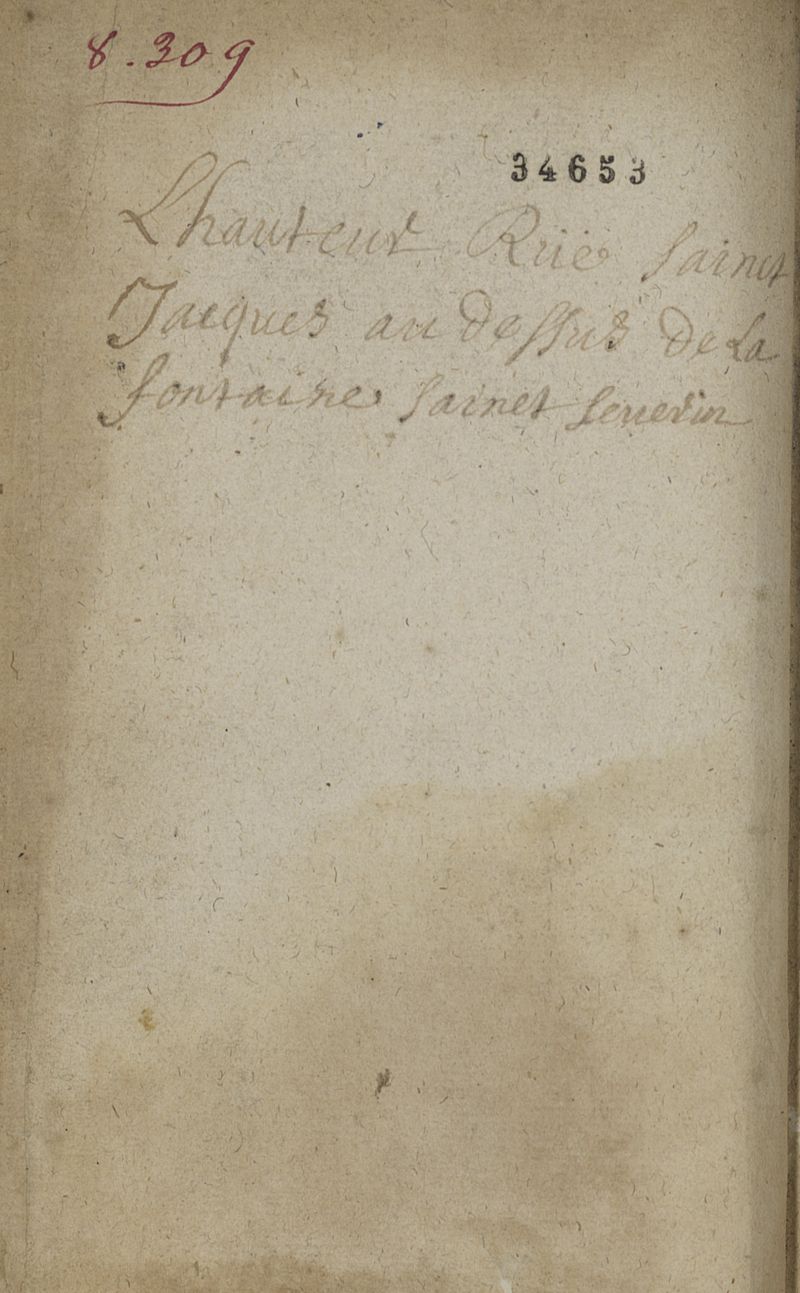 8.309
34653
Lhauteur Rüe sainct
Jacques au dessus de la
fontaine sainct seuerin